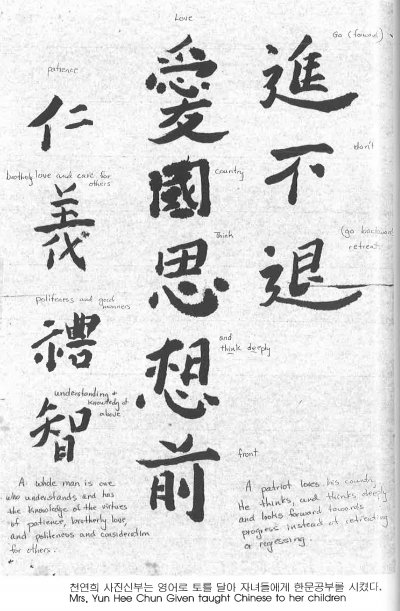 進不退
Go (forward)
don't
(go backward
retreat
愛國思想前
Love
country
Think
and
think deeply
front
仁義禮智
patience
brotherly love and care for
others
politeness and good
manners
understanding +
knowledge of
above
A patriot loves his country.
He thinks, and thinks deeply
and looks forward towards
progress instead of retreating
or regressing.
A whole man is one
who understands and has
the knowledge of the virtues
of patience, brotherly love
and politeness and consideration
for others.
천연희 사진신부는 영어로 토를 달아 자녀들에게 한문공부를 시켰다.
Mrs, Yun Hee Chun Given taught Chinese to her children